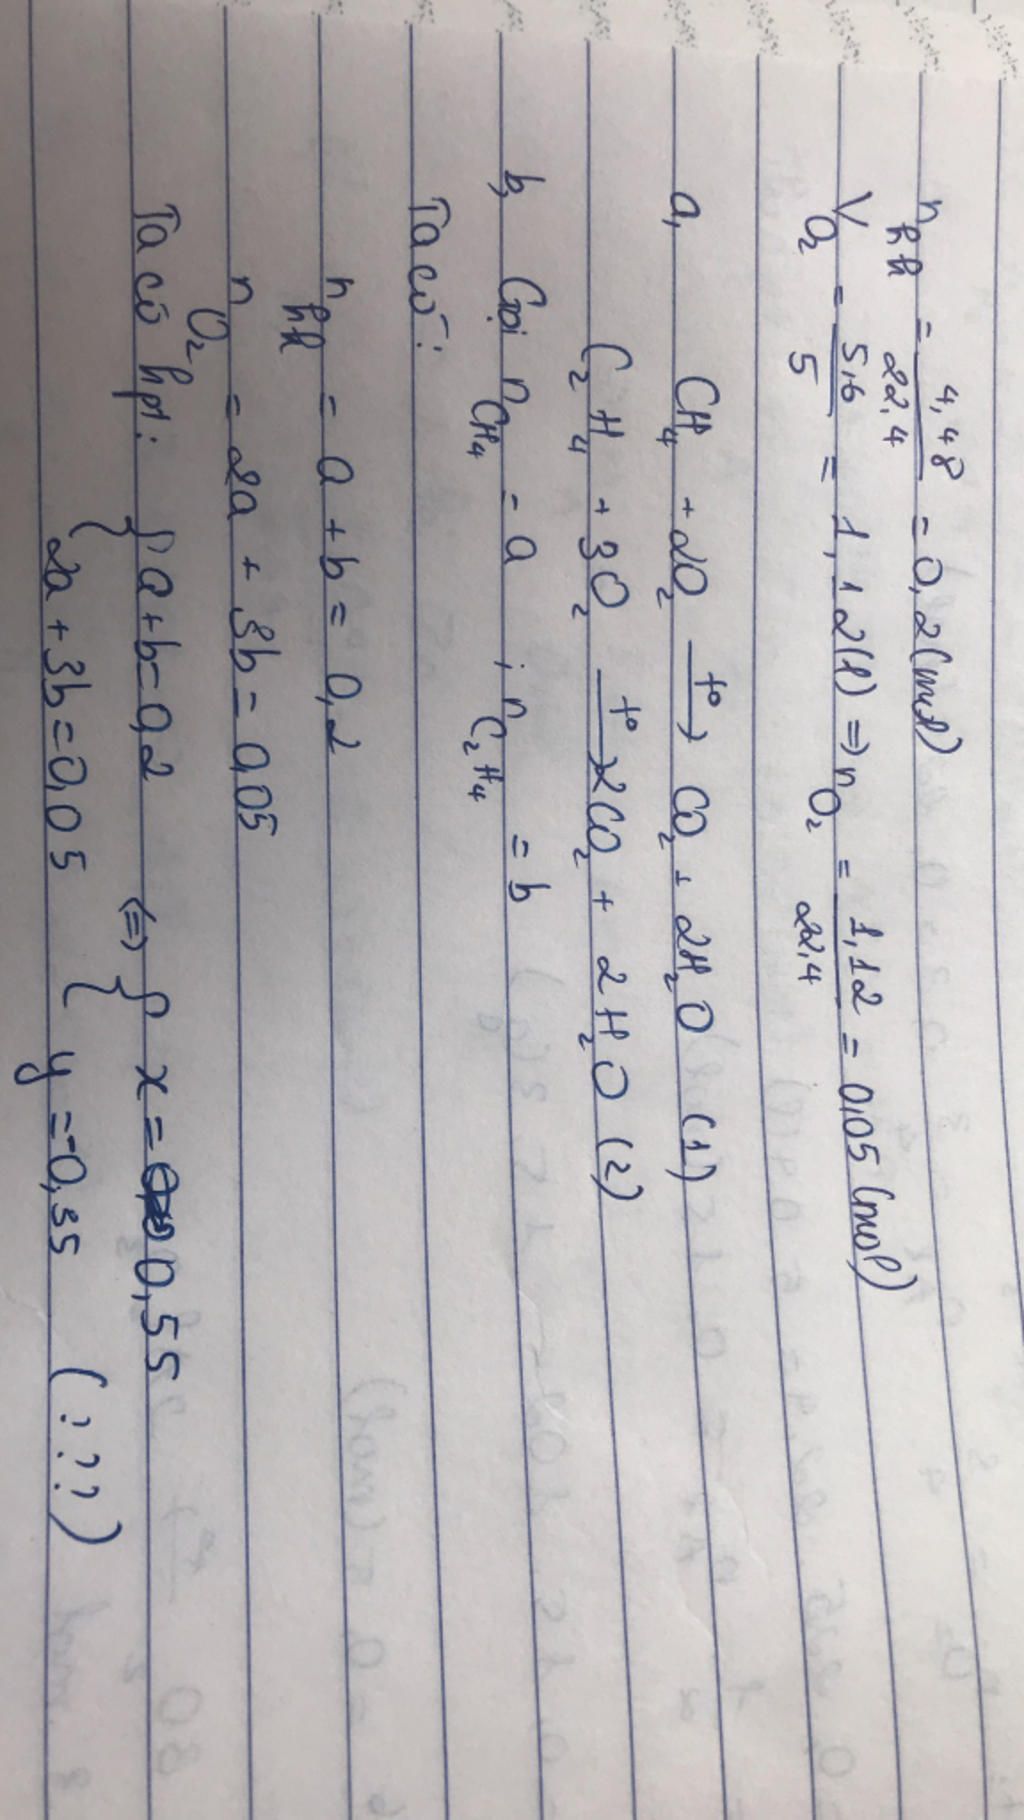 n hh = 4,48 / 22,4 = 0,2 (mol)
V O2 = 5,6 / 5 = 1,12 (l) => n O2 = 1,12 / 22,4 = 0,05 (mol)
a, CH4 + 2O2 t° → CO2 + 2H2O (1)
C2H4 + 3O2 t° → 2CO2 + 2H2O (2)
b, Gọi n CH4 = a ; n C2H4 = b
Ta có:
n hh = a + b = 0,2
n O2 = 2a + 3b = 0,05
Ta có hpt: { a + b = 0,2 <=> { x = 0,55
2a + 3b = 0,05 y = -0,35 (???)